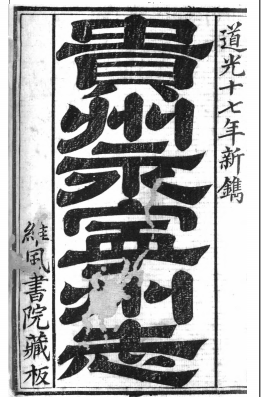 道光十七年新鐫
貴州永寧州志
維風書院藏板